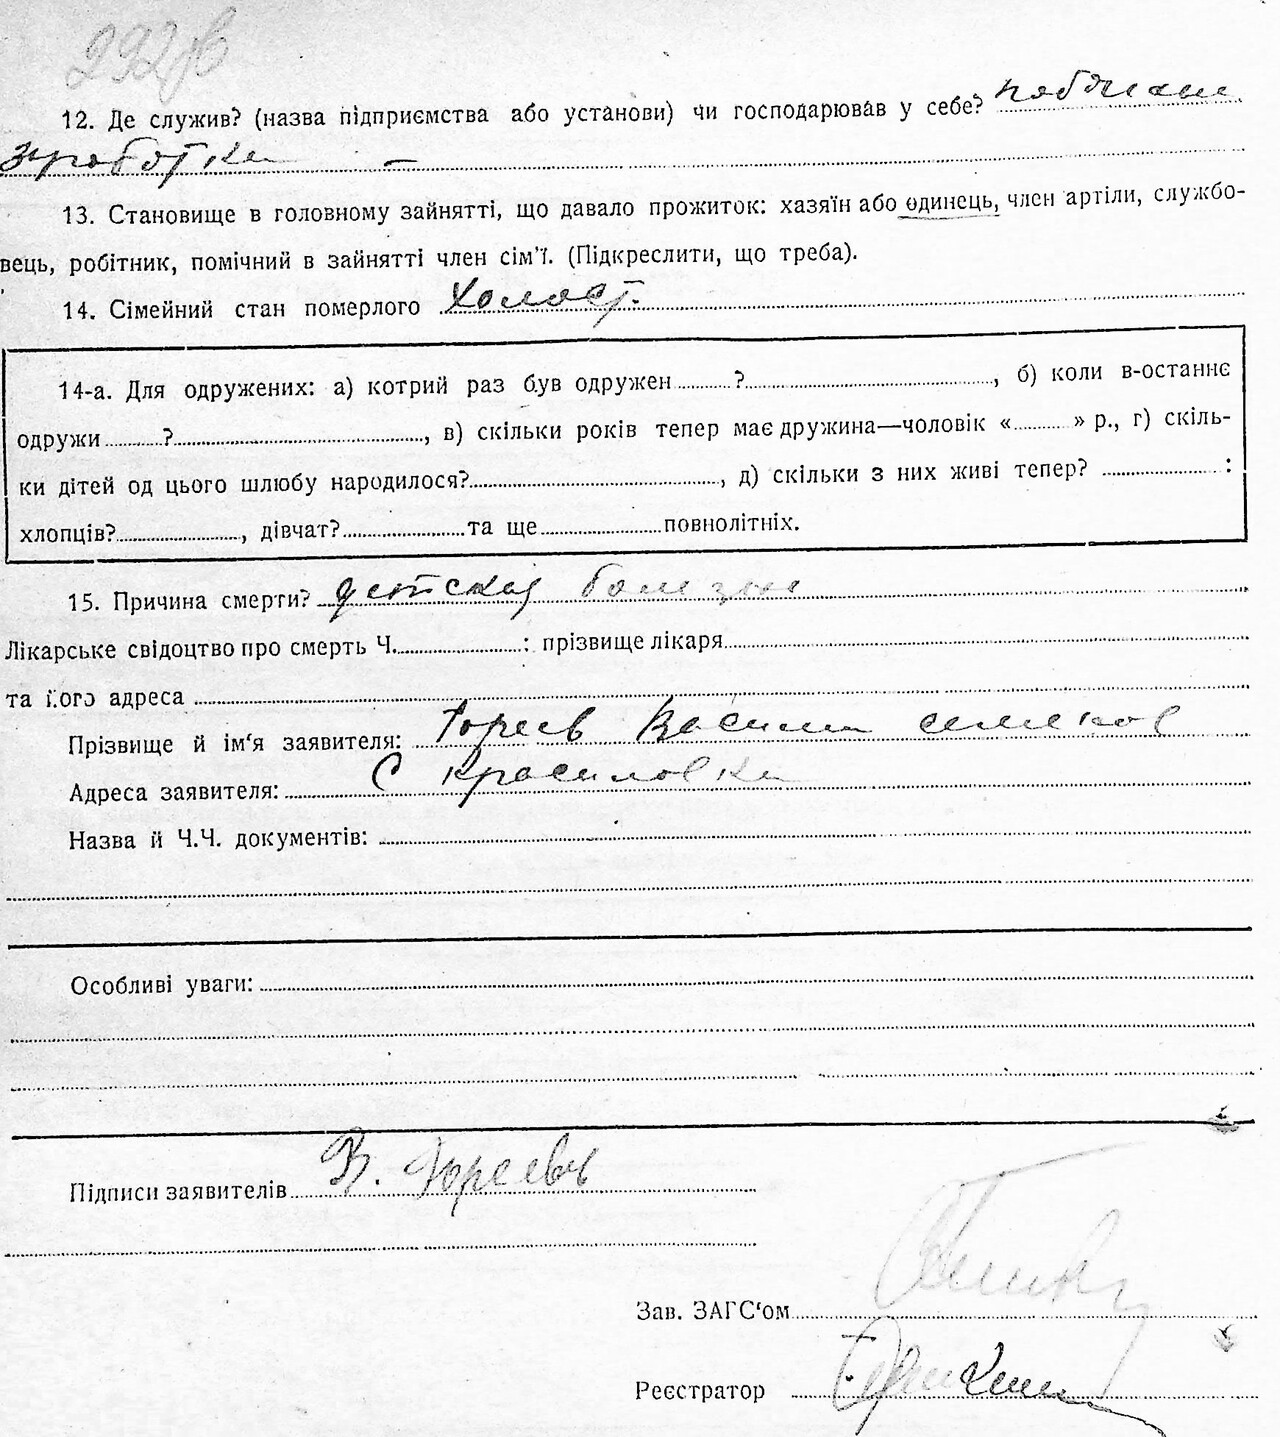 292 зв
12. Де служив? (назва підприємства або установи) чи господарював у себе?
заработки –
13. Становище в головному зайнятті, що давало прожиток: хазяїн або одинець, член артіли, службо-
вець, робітник, помічний в зайнятті член сім'ї. (Підкреслити, що треба).
14. Сімейний стан померлого Холост.
14-а. Для одружених: а) котрий раз був одружен ? , б) коли в-останнє
одружи ? , в) скільки років тепер має дружина—чоловік « » р., г) скіль-
ки дітей од цього шлюбу народилося? , д) скільки з них живі тепер? :
хлопців? , дівчат? та ще повнолітніх.
15. Причина смерти? детская болезнь
Лікарське свідоцтво про смерть Ч. : прізвище лікаря
та його адреса
Прізвище й ім'я заявителя: Юрьев Василий
Адреса заявителя: С Красиловка
Назва й Ч.Ч. документів:
Особливі уваги:
Підписи заявителів В.
Зав. ЗАГС'ом
Реєстратор